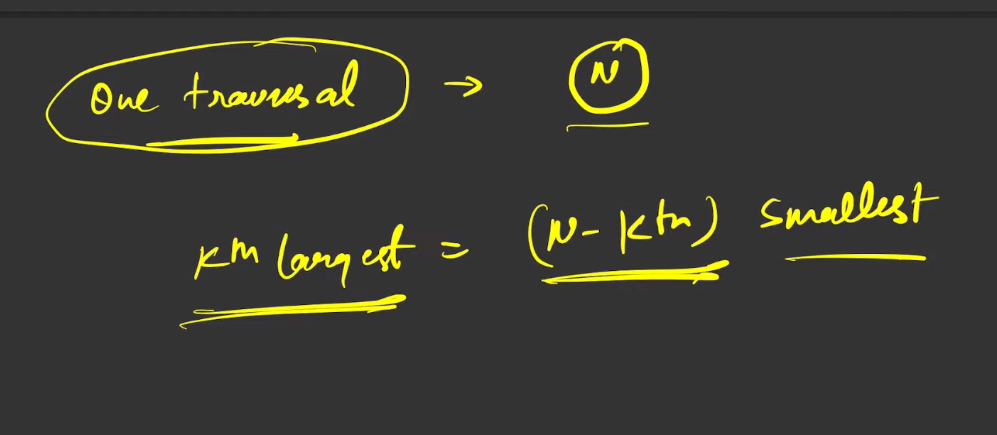 One traversal → N
kth largest = (N - kth) smallest